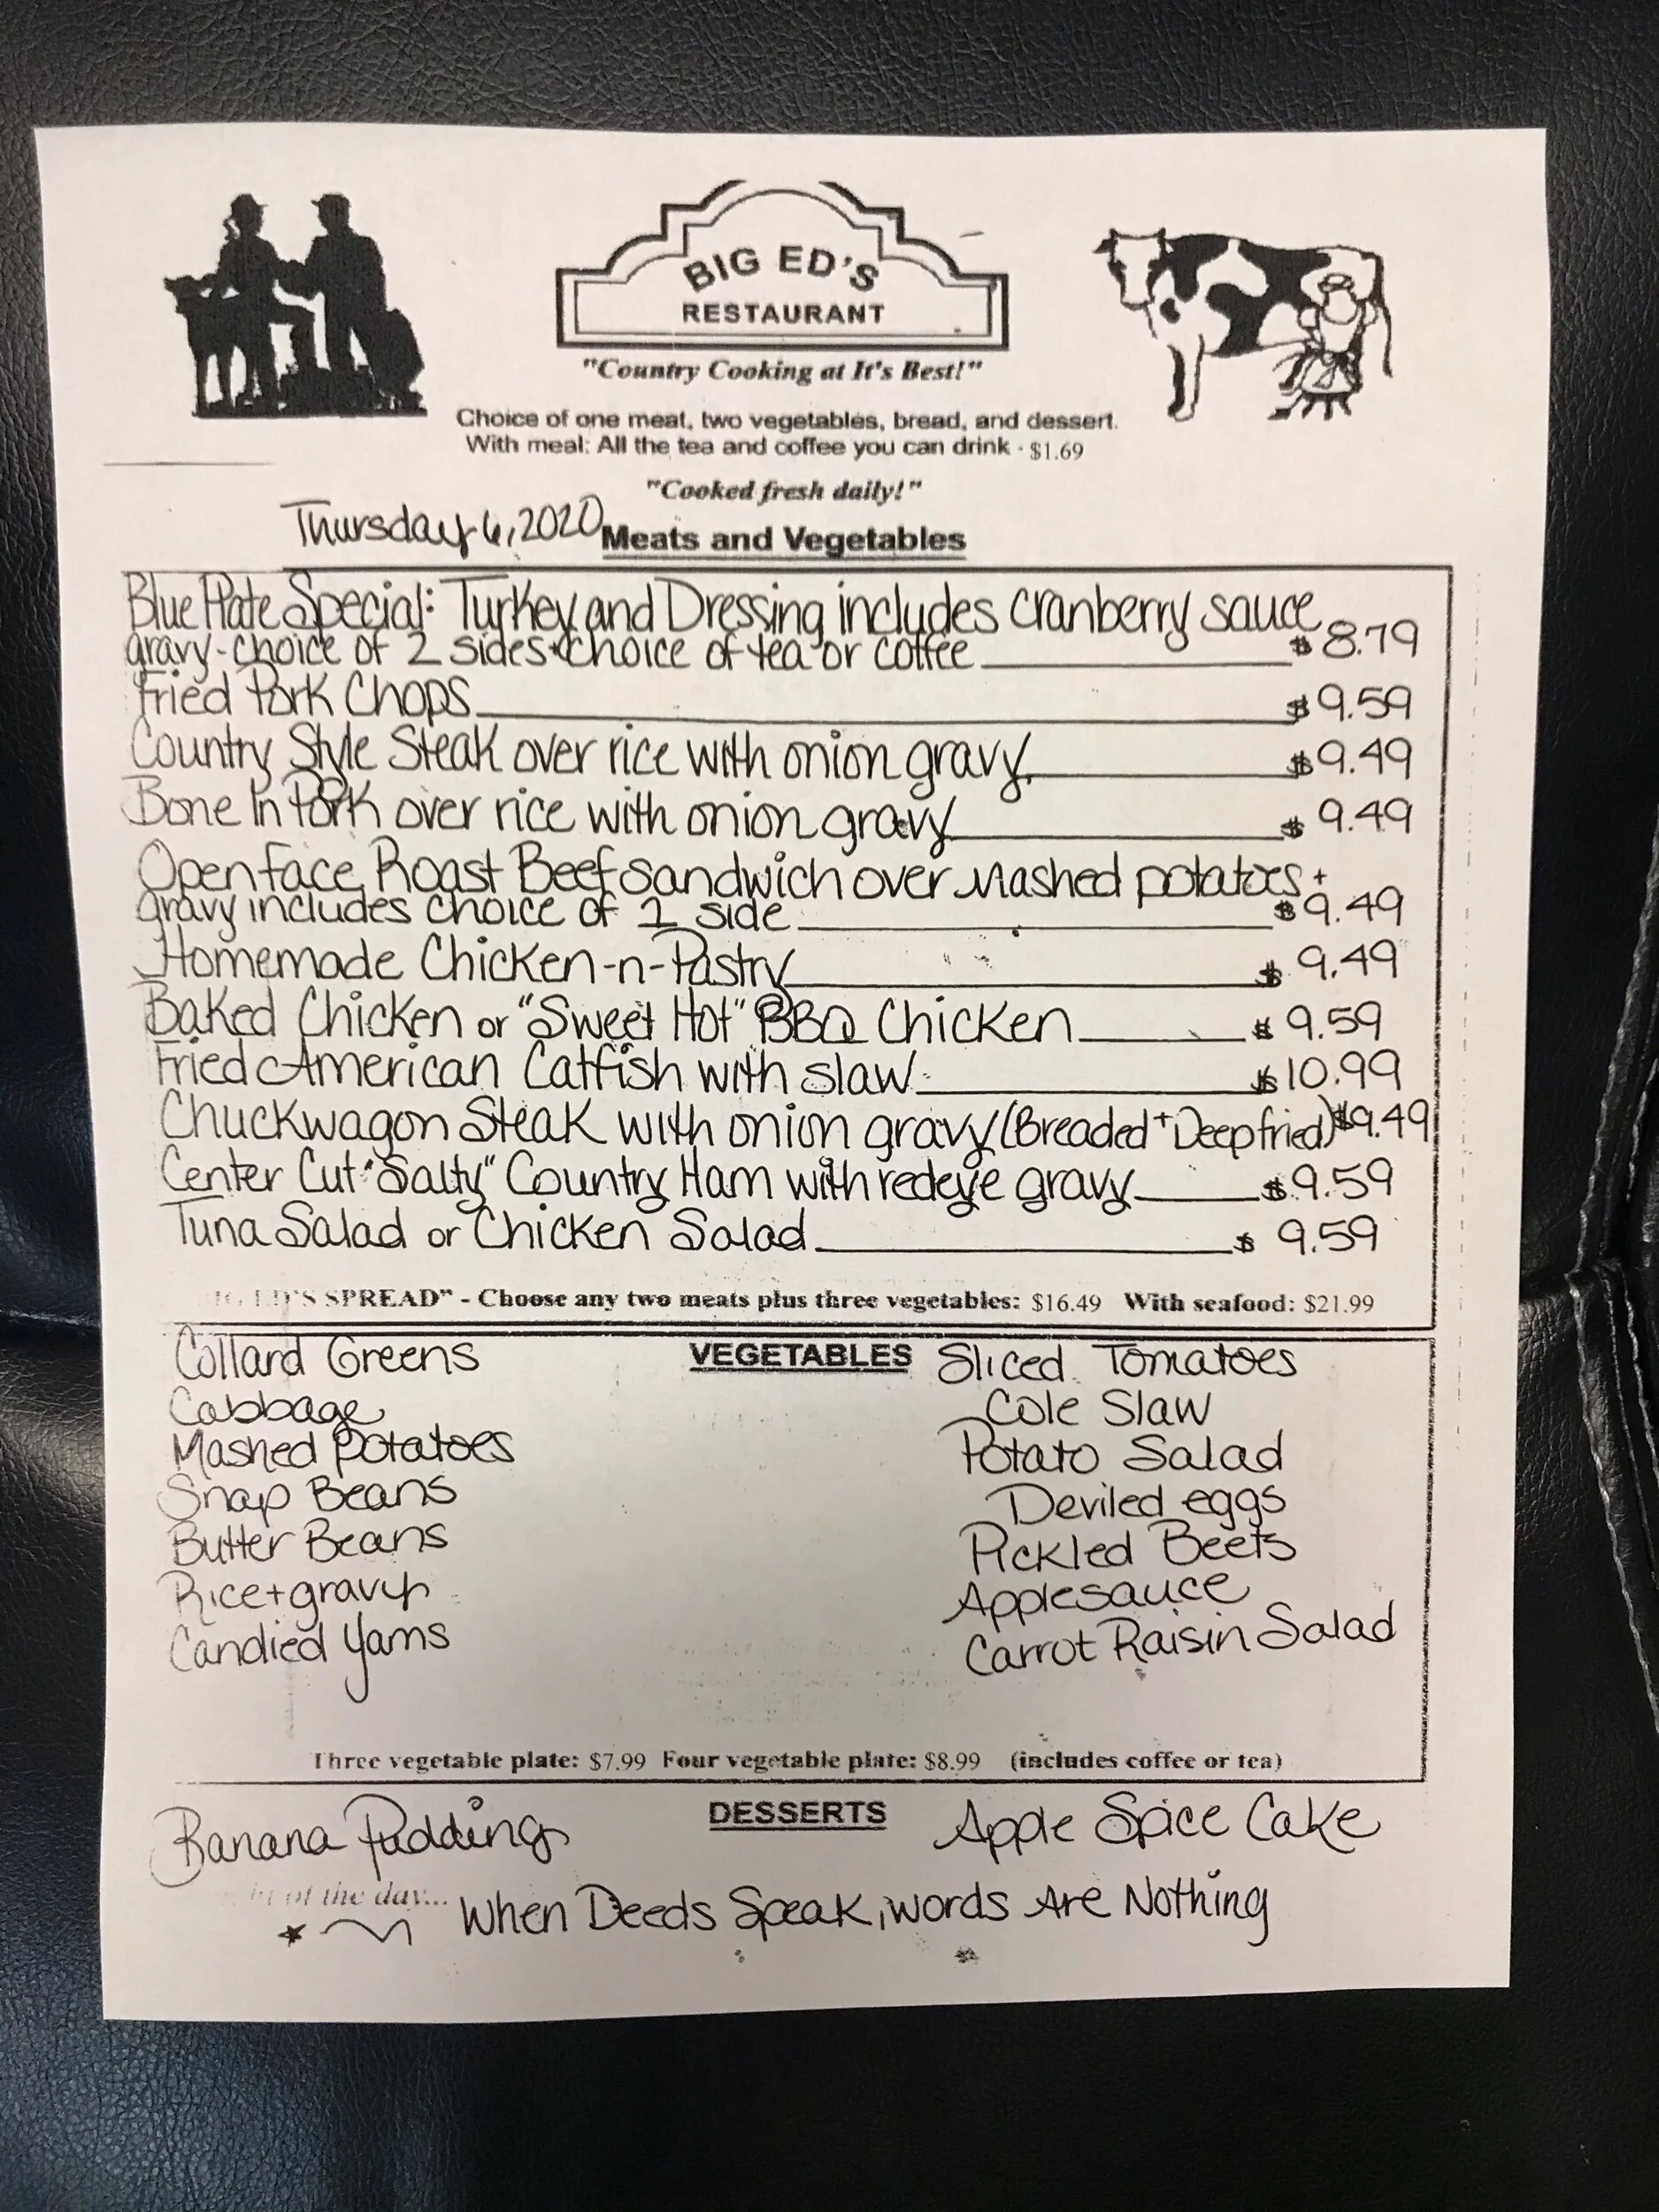 BIG ED'S
RESTAURANT
"Country Cooking at It's Best!"
Choice of one meat, two vegetables, bread, and dessert.
With meal: All the tea and coffee you can drink - $1.69
"Cooked fresh daily!"
Thursday 6, 2020
Meats and Vegetables
Blue Plate Special: Turkey and Dressing includes cranberry sauce
gravy-choice of 2 sides + choice of tea or coffee $8.79
Fried Pork Chops $9.59
Country Style Steak over rice with onion gravy $9.49
Bone In Pork over rice with onion gravy $9.49
Open Face Roast Beef sandwich over mashed potatoes +
gravy includes choice of 1 side $9.49
Homemade Chicken-n-Pastry $9.49
Baked Chicken or "Sweet Hot" BBQ Chicken $9.59
Fried American Catfish with slaw $10.99
Chuckwagon Steak with onion gravy (Breaded + Deep fried) $9.49
Center Cut "Salty" Country Ham with redeye gravy $9.59
Tuna Salad or Chicken Salad $9.59
ED'S SPREAD" - Choose any two meats plus three vegetables: $16.49 With seafood: $21.99
VEGETABLES
Collard Greens
Cabbage
Mashed Potatoes
Snap Beans
Butter Beans
Rice + gravy
Candied Yams
Sliced Tomatoes
Cole Slaw
Potato Salad
Deviled eggs
Pickled Beets
Applesauce
Carrot Raisin Salad
Three vegetable plate: $7.99 Four vegetable plate: $8.99 (includes coffee or tea)
DESSERTS
Banana Pudding
Apple Spice Cake
of the day...
When Deeds Speak, words Are Nothing